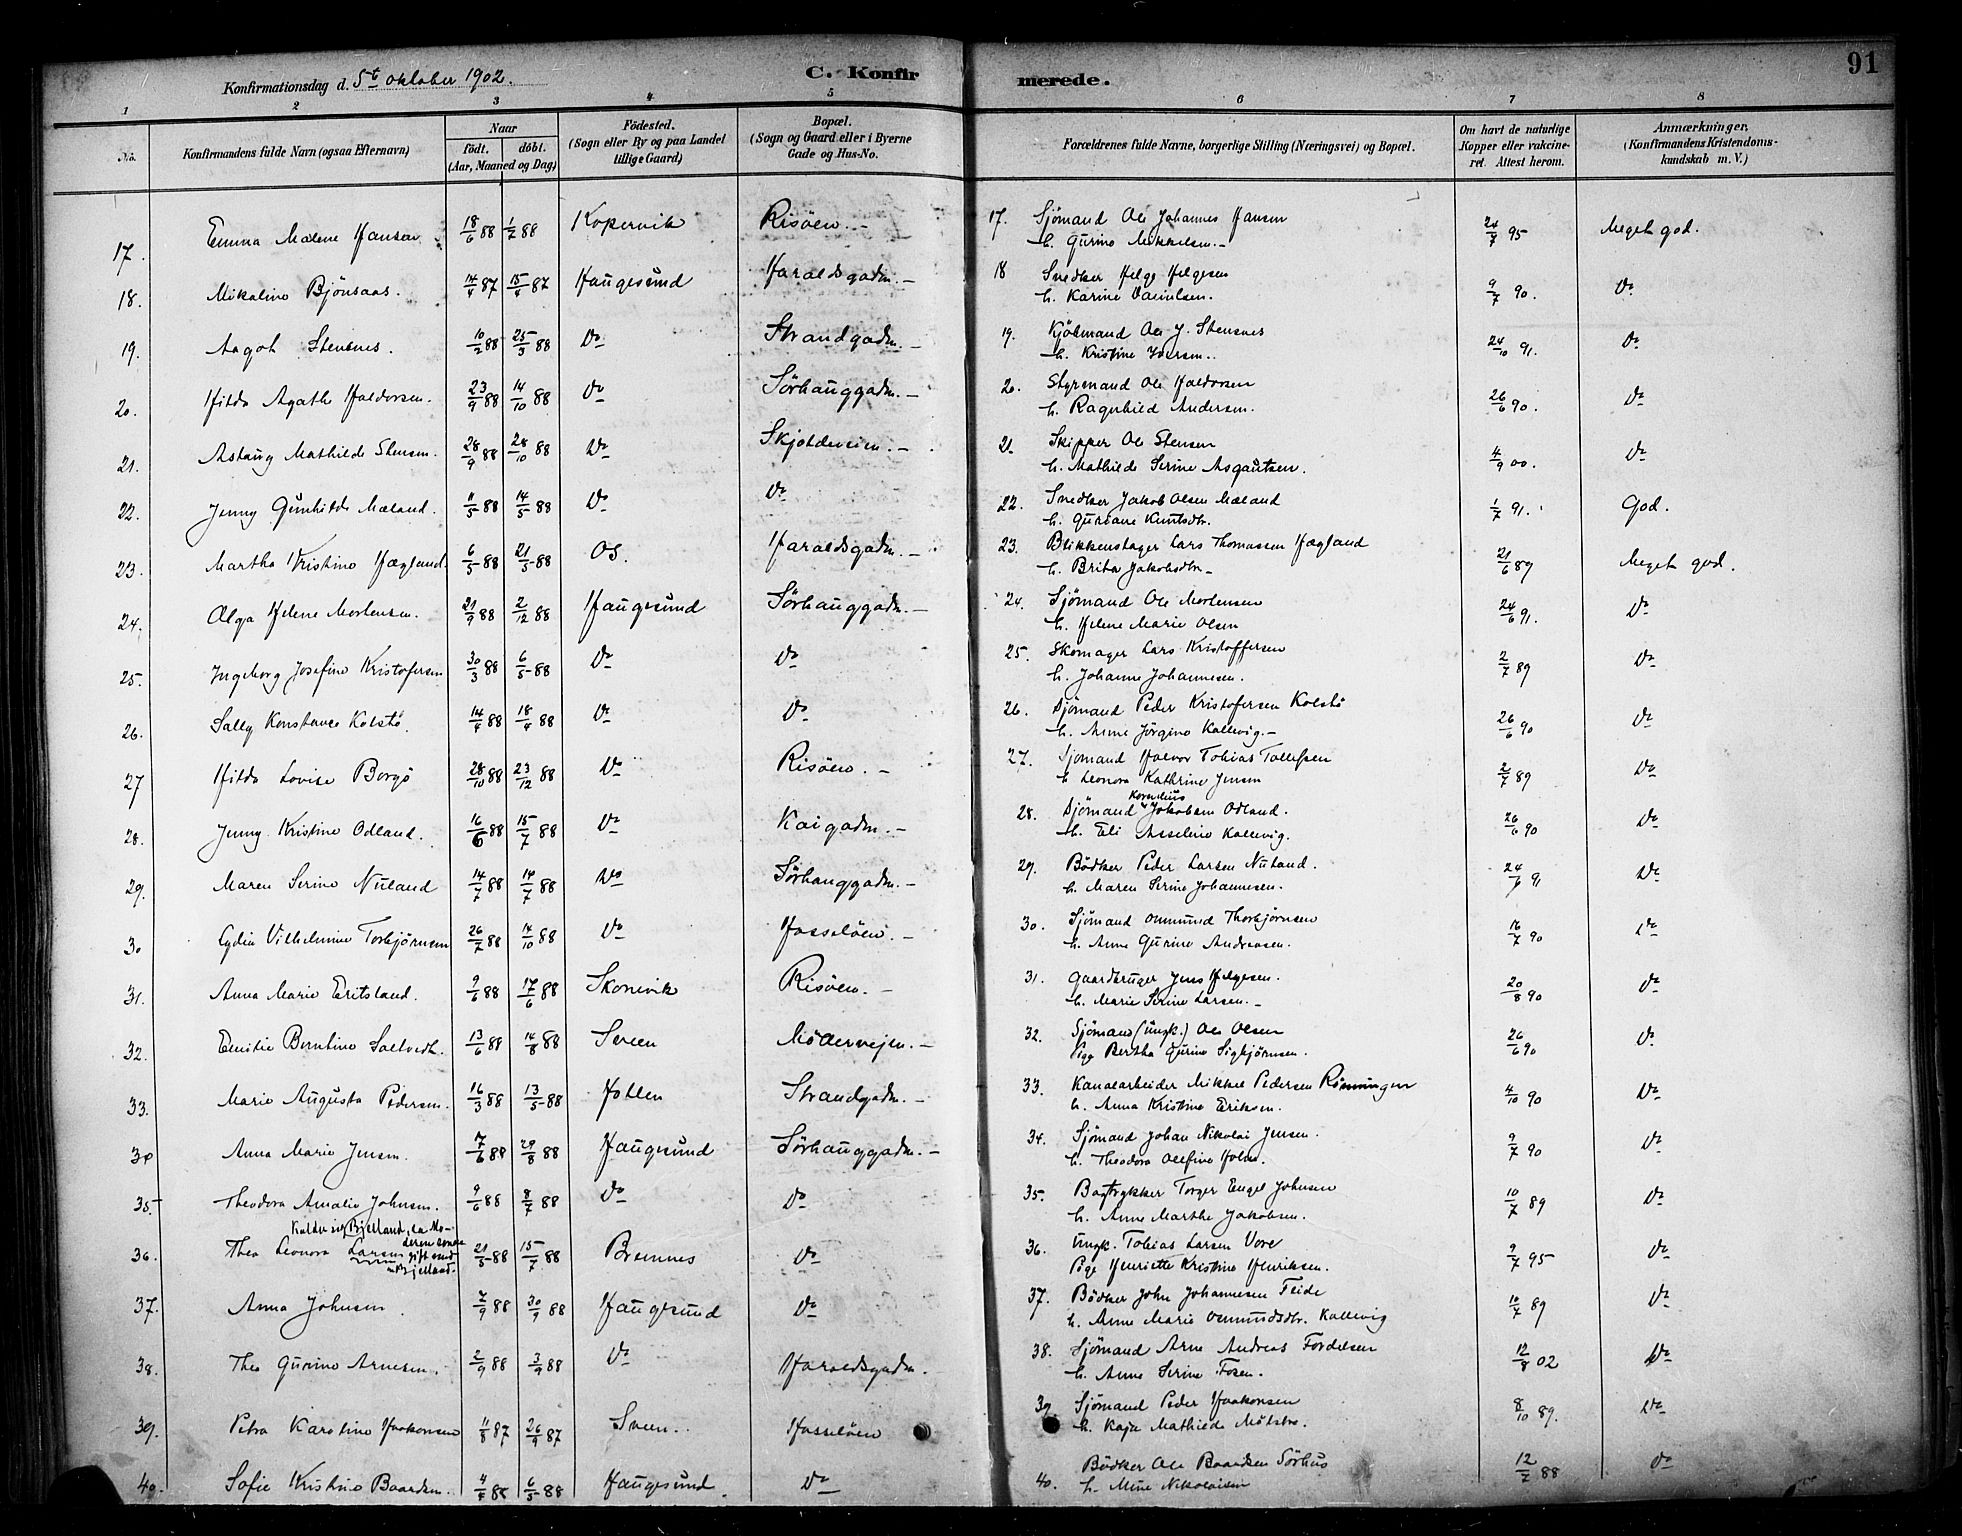 91
Konfirmationsdag d. 5t Oktober 1902.
C. Konfirmerede.
1 2 3 4 5 6 7 8
No. Konfirmandens fulde Navn (ogsaa Efternavn) Naar født. døbt. (Aar, Maaned og Dag) Fødested. (Sogn eller By og paa Landet tillige Gaard) Bopæl. (Sogn og Gaard eller i Byerne Gade og Hus-No. Forældrenes fulde Navne, borgerlige Stilling (Næringsvei) og Bopæl. Om havt de naturlige Kopper eller vaccineret. Attest herom. Anmærkninger, (Konfirmandens Kristendomskundskab m. V.)
17. Emma Malene Hansen 18/6 88 1/7 88 Kopervik Risöen.- 17. Sjömand Ole Johannes Hansen 24/7 95 Meget god.
h. Gurine Mikkelsen.-
18. Mikaline Bjönsaas. 14/4 87 15/4 87 Haugesund Haraldsgadn.- 18 Snedker Helge Helgesen 9/7 90. Do
h. Karine Danielsen.
19. Aagot Stensnes. 10/2 88 25/3 88 Do Strandgadn.- 19. Kjöbmand Ole J. Stensnes 24/10 91. Do
h. Kristine Iversen.
20. Hilda Agathe Haldorsen. 23/9 88 14/10 88 Do Sörhauggadn.- 20. Styrmand Ole Haldorsen 26/6 90. Do
h. Ragnhild Andersen.
21. Aslaug Mathilde Stensen. 28/9 88 28/10 88 Do Skjoldaveien.- 21 Skipper Ole Stensen 4/9 00. Do
h. Mathilde Serine Asgautsen.
22. Jenny Gunhilde Mæland. 11/5 88 14/5 88 Do Do 22. Snedker Jakob Olsen Mæland 1/7 91. God.
h. Guroane Knutsdtr.
23. Martha Kristine Hægland. 6/5 88 21/5 88 Os. Haraldsgadn.- 23. Blikkenslager Lars Thomassen Hægland 21/6 89 Meget god.
h. Brita Jakobsdtr.-
24. Olga Helene Mortensen. 21/9 88 2/12 88 Haugesund Sörhauggadn.- 24. Sjömand Ole Mortensen 24/6 91. Do
h. Helene Marie Olsen
25. Ingeborg Josefine Kristofersen 30/3 88 6/5 88 Do Do 25. Skomager Lars Kristoffersen 2/7 89 Do
h. Johanne Johannesen.
26. Sally Konstance Kolstö. 14/4 88 18/4 88 Do Do 26. Sjömand Peder Kristofersen Kolstö 26/6 90 Do
h. Anne Jörgine Kallevig.-
27 Hilda Lovise Borgö 28/10 88 23/12 88 Do Risöen.- 27. Sjömand Halvor Tobias Tollefsen 2/7 89 Do
h. Leonora Kathrine Jensen
28. Jenny Kristine Odland. 16/6 88 15/7 88 Do Kaigadn.- 28. Sjömand Kornelius Jakobsen Odland. 26/6 90 Do
h. Eli Asseline Kallevig.
29. Maren Serine Nuland 14/7 88 14/7 88 Do Sörhauggadn.- 29. Bödker Peder Larsen Nuland. 24/6 91 Do
h. Maren Serine Johannesen.
30 Lydia Vilhelmine Torbjörnsen 26/7 88 14/10 88 Do Hasselöen.- 30. Sjömand Ommund Thorbjörnsen 16/7 90 Do
h. Anne Gurine Andreasen.
31. Anna Marie Eritsland. 9/6 88 17/6 88 Skonevik Risöen.- 31. Gaardbruger Jens Helgesen. 20/8 90 Do
h. Marie Serine Larsen.-
32. Emilie Berntine Saltvedt. 13/6 88 14/8 88 Sveen 32. Sjömand (ungk.) Ole Olsen 26/6 90 Do
Pige Bertha Gurine Sigbjörnsen.
33. Marie Augusta Pedersen. 16/3 88 13/5 88 Holten Strandgadn.- 33. Kanalarbeider Mikkel Pedersen Rönningen 4/10 90 Do
h. Anna Kristine Eriksen.
34 Anna Marie Jensen. 7/6 88 29/8 88 Haugesund Sörhauggadn.- 34. Sjömand Johan Nikolai Jensen. 9/7 90 Do
h. Theodora Olefine Holm.
35. Theodora Amalie Johnsen. 9/6 88 8/7 88 Do Do 35. Bogtrykker Torger Engel Johnsen 10/7 89 Do
h. Anne Marthe Jakobsen.
Kalder sig Bjelland, da Mo-
deren senere
36. Thea Leonora Larsen gift med 21/5 88 15/7 88 Bremnes Do 36. Ungk. Tobias Larsen Vore 9/7 95 Do
Bjelland. Pige Henriette Kristine Henriksen.
37. Anna Johnsen 2/9 88 30/9 88 Haugesund Do 37. Bödker John Johannesen Feide 10/7 89 Do
h. Anne Marie Ommundsdtr. Kallevig
38. Thea Gurine Arnesen. 2/9 88 3/9 88 Do Haraldsgadn. 38. Sjömand Arne Andreas Fordelsen 12/8 02 Do
h. Anne Serine Fosen.
39. Petra Karoline Haakonsen 11/8 87 26/9 87 Sveen. Hasselöen 39. Sjömand Peder Haakonsen 8/10 89. Do
h. Kaja Mathilde
40. Sofie Kristine Baardsen. 4/4 88 6/5 88 Haugesund. Do 40. Bödker Ole Baardsen Sörhus 12/7 88 Do
h. Mine Nikolaisen